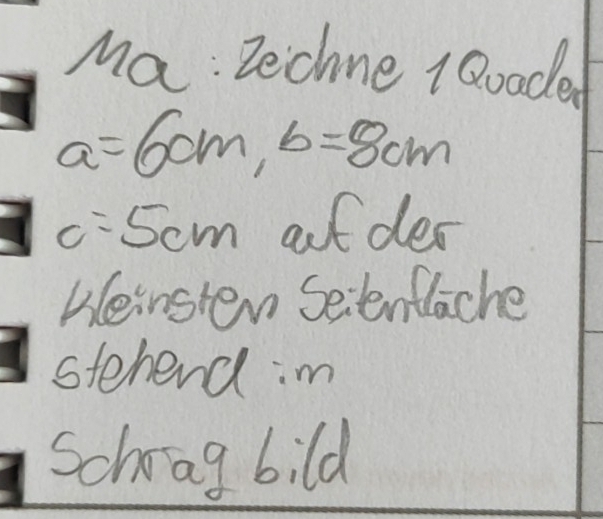 Ma: Zeichne 1 Quader
a=6cm, b=8cm
c=5cm auf der
kleinsten Seitenfläche
stehend im
Schrägbild